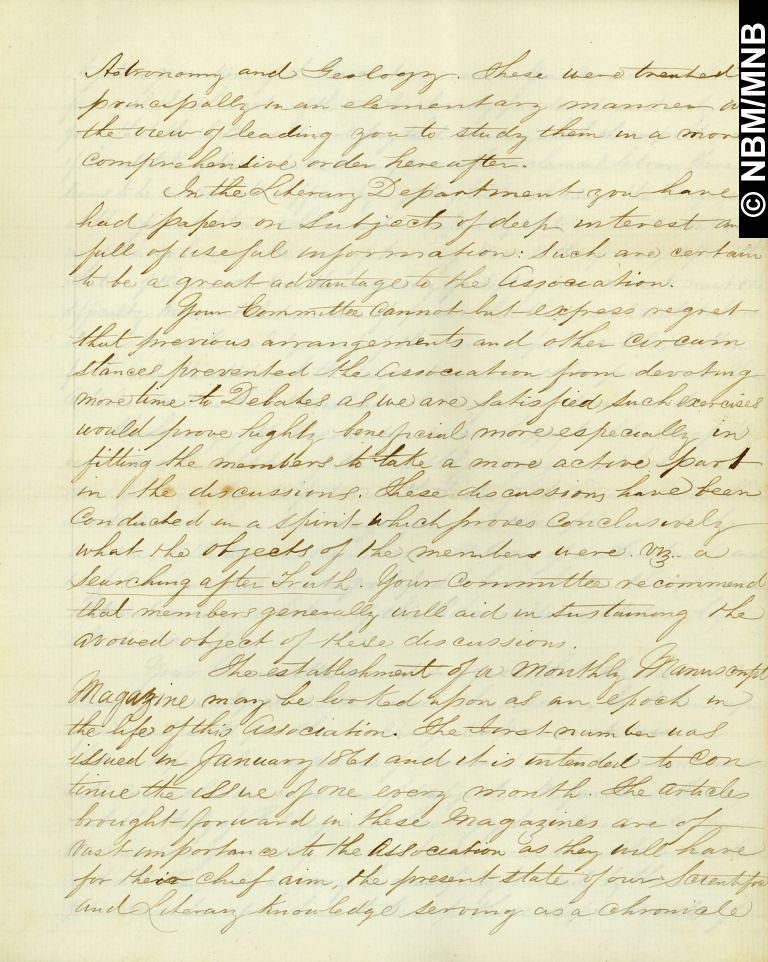 Astronomy and Geology. These were treated
principally in an elementary manner
the view of leading you to study them in a more
comprehensive order hereafter.
In the Literary Department you have
had papers on subjects of deep interest an
full of useful information: such are certain
to be a great advantage to the Association.
Your Committee cannot but express regret
that previous arrangements and other circum
stances prevented the Association from devoting
more time to Debates as we are satisfied such exercises
would prove highly beneficial more especially in
fitting the members to take a more active part
in the discussions. These discussions have been
conducted in a spirit which proves conclusively
what the objects of the members were. viz. a
searching after Truth. Your Committee recommend
that members generally will aid in sustaining the
avowed object of these discussions.
The establishment of a Monthly Manuscript
Magazine may be looked upon as an epoch in
the life of this Association. The first number was
issued in January 1861 and it is intended to con
tinue the issue of one every month. The articles
brought forward in these Magazines are of
vast importance to the Association as they will have
for their chief aim, the present state of our Scientific
and Literary knowledge serving as a chronicle
© NBM/MNB